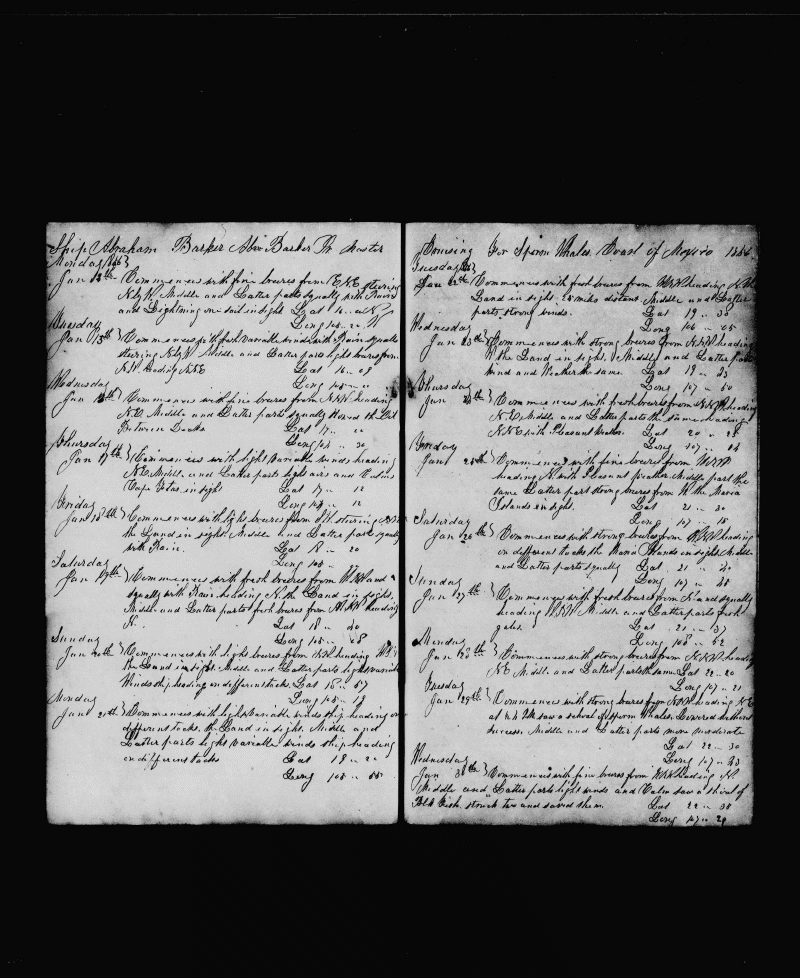 Ship Abraham Barker Abm Barker Master
Monday
Jan 14th } Commences with fine breezes from ENE steering
N by W. Middle and Latter parts squally with Rain
and Lightning one sail in sight Lat 16
Long 105
Tuesday
Jan 15th } Commences with fresh variable winds with Rain squalls
steering N by W Middle and Latter parts light breezes from
NW heading NNE Lat 16 .. 09
Long 105
Wednesday
Jan 16th } Commences with fine breezes from NNW heading
NE Middle and Latter parts squally Stored the
Between Decks Lat 17
Long 104 .. 30
Thursday
Jan 17th } Commences with light variable winds heading
NE Middle and Latter parts light airs and Calms
in sight Lat 17 .. 12
Long 12
Friday
Jan 18th } Commences with light breezes from steering
the Land in sight Middle and Latter parts squally
with Rain. Lat 18 .. 20
Long 105
Saturday
Jan 19th } Commences with fresh breezes from and
squally with Rain heading N the Land in sight.
Middle and Latter parts fresh breezes from heading
N. Lat 18 .. 40
Long 105 .. 08
Sunday
Jan 20th } Commences with light breezes from heading
the Land in sight Middle and Latter parts light variable
Winds ship heading on different tacks. Lat 18 .. 57
Long 105
Monday
Jan 21st } Commences with light variable winds ship heading on
different tacks, the Land in sight. Middle and
Latter parts light variable winds ship heading
on different tacks Lat 19 .. 20
Long 105 .. 55
Cruising For Sperm Whales Coast of Mexico
Tuesday
Jan 22th Commences with fresh breezes from heading
Land in sight. 25 miles distant. Middle and Latter
parts strong winds. Lat 19 .. 30
Long 106 .. 05
Wednesday
Jan 23th } Commences with strong breezes from NNW heading
W the Land in sight. Middle and Latter parts
wind and Weather the same. Lat 19 .. 23
Long 107 .. 50
Thursday
Jan 24th } Commences with fresh breezes from NNW heading
NE Middle and Latter parts the same heading
NNE with Pleasant Weather. Lat 20 .. 25
Long 107 .. 44
Friday
Jan 25th } Commences with fine breezes from
heading N with Pleasant Weather Middle part the
same Latter part strong breezes from the Maria
Islands in sight. Lat 21 .. 20
Long 107 .. 15
Saturday
Jan 26th } Commences with strong breezes from heading
on different tacks the Maria Islands in sight. Middle
and Latter parts squally Lat 21 .. 40
Long 107 .. 48
Sunday
Jan 27th } Commences with fresh breezes from N and squally
heading Middle and Latter parts fresh
gales. Lat 21 .. 37
Long 108 .. 52
Monday
Jan 28th } Commences with strong breezes from NNW heading
NE Middle and Latter parts the same Lat 22 .. 20
Long 107 .. 21
Tuesday
Jan 29th } Commences with strong breezes from NNW heading NE
at 4 PM saw a school of Sperm Whales Lowered without
success. Middle and Latter parts more moderate
Lat 22 .. 30
Long 107 .. 43
Wednesday
Jan 30th } Commences with fine breezes from heading N
Middle and Latter parts light winds and Calm saw a shoal of
Blk Fish, struck two and saved them. Lat 22 .. 38
Long 107 .. 29